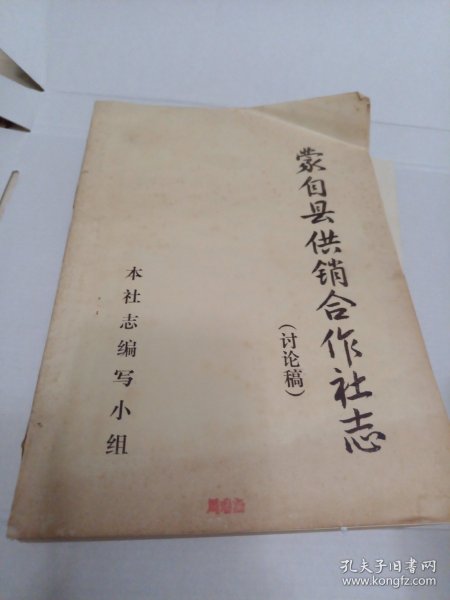 蒙自县供销合作社志
(讨论稿)
本社志编写小组
孔夫子旧书网
www.kongfz.com